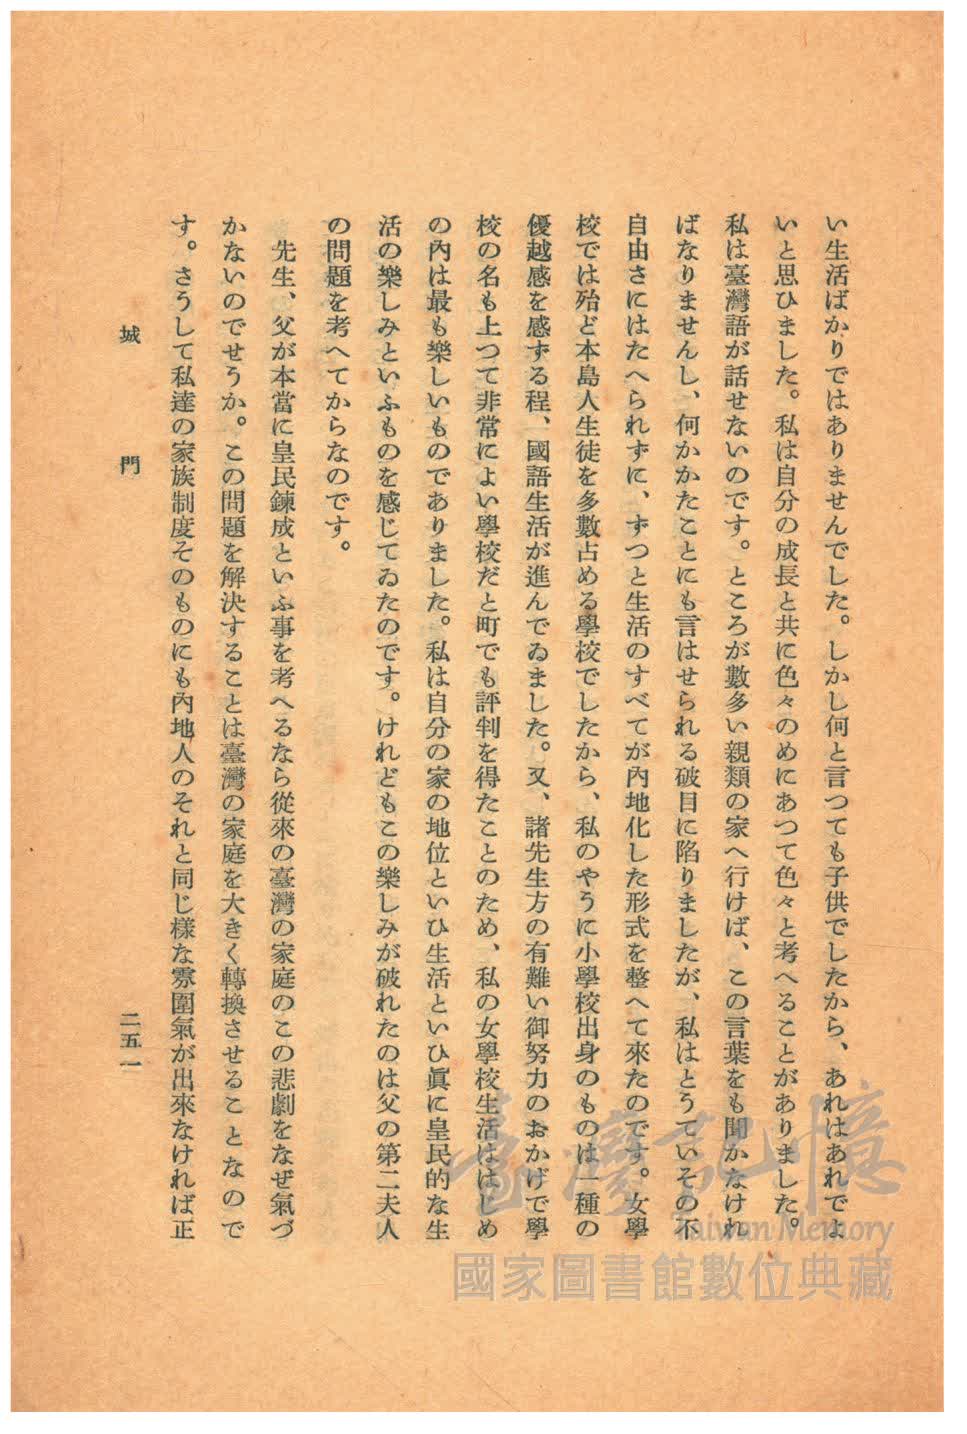 い生活ばかりではありませんでした。しかし何と言つても子供でしたから、あれはあれでよ
いと思ひました。私は自分の成長と共に色々のめにあつて色々と考へることがありました。
私は臺灣語が話せないのです。ところが數多い親類の家へ行けば、この言葉をも聞かなけれ
ばなりませんし、何かかたことにも言はせられる破目に陷りましたが、私はとうていその不
自由さにはたへられずに、ずつと生活のすべてが內地化した形式を整へて來たのです。女學
校では殆ど本島人生徒を多數占める學校でしたから、私のやうに小學校出身のものは一種の
優越感を感ずる程、國語生活が進んでゐました。又、諸先生方の有難い御努力のおかげで學
校の名も上つて非常によい學校だと町でも評判を得たことのため、私の女學校生活ははじめ
の內は最も樂しいものでありました。私は自分の家の地位といひ生活といひ眞に皇民的な生
活の樂しみといふものを感じてゐたのです。けれどもこの樂しみが破れたのは父の第二夫人
の問題を考へてからなのです。
先生、父が本當に皇民鍊成といふ事を考へるなら從來の臺灣の家庭のこの悲劇をなぜ氣づ
かないのでせうか。この問題を解決することは臺灣の家庭を大きく轉換させることなので
す。さうして私達の家族制度そのものにも內地人のそれと同じ樣な雰圍氣が出來なければ正
城門
二五一
臺灣記憶
Taiwan Memory
國家圖書館數位典藏